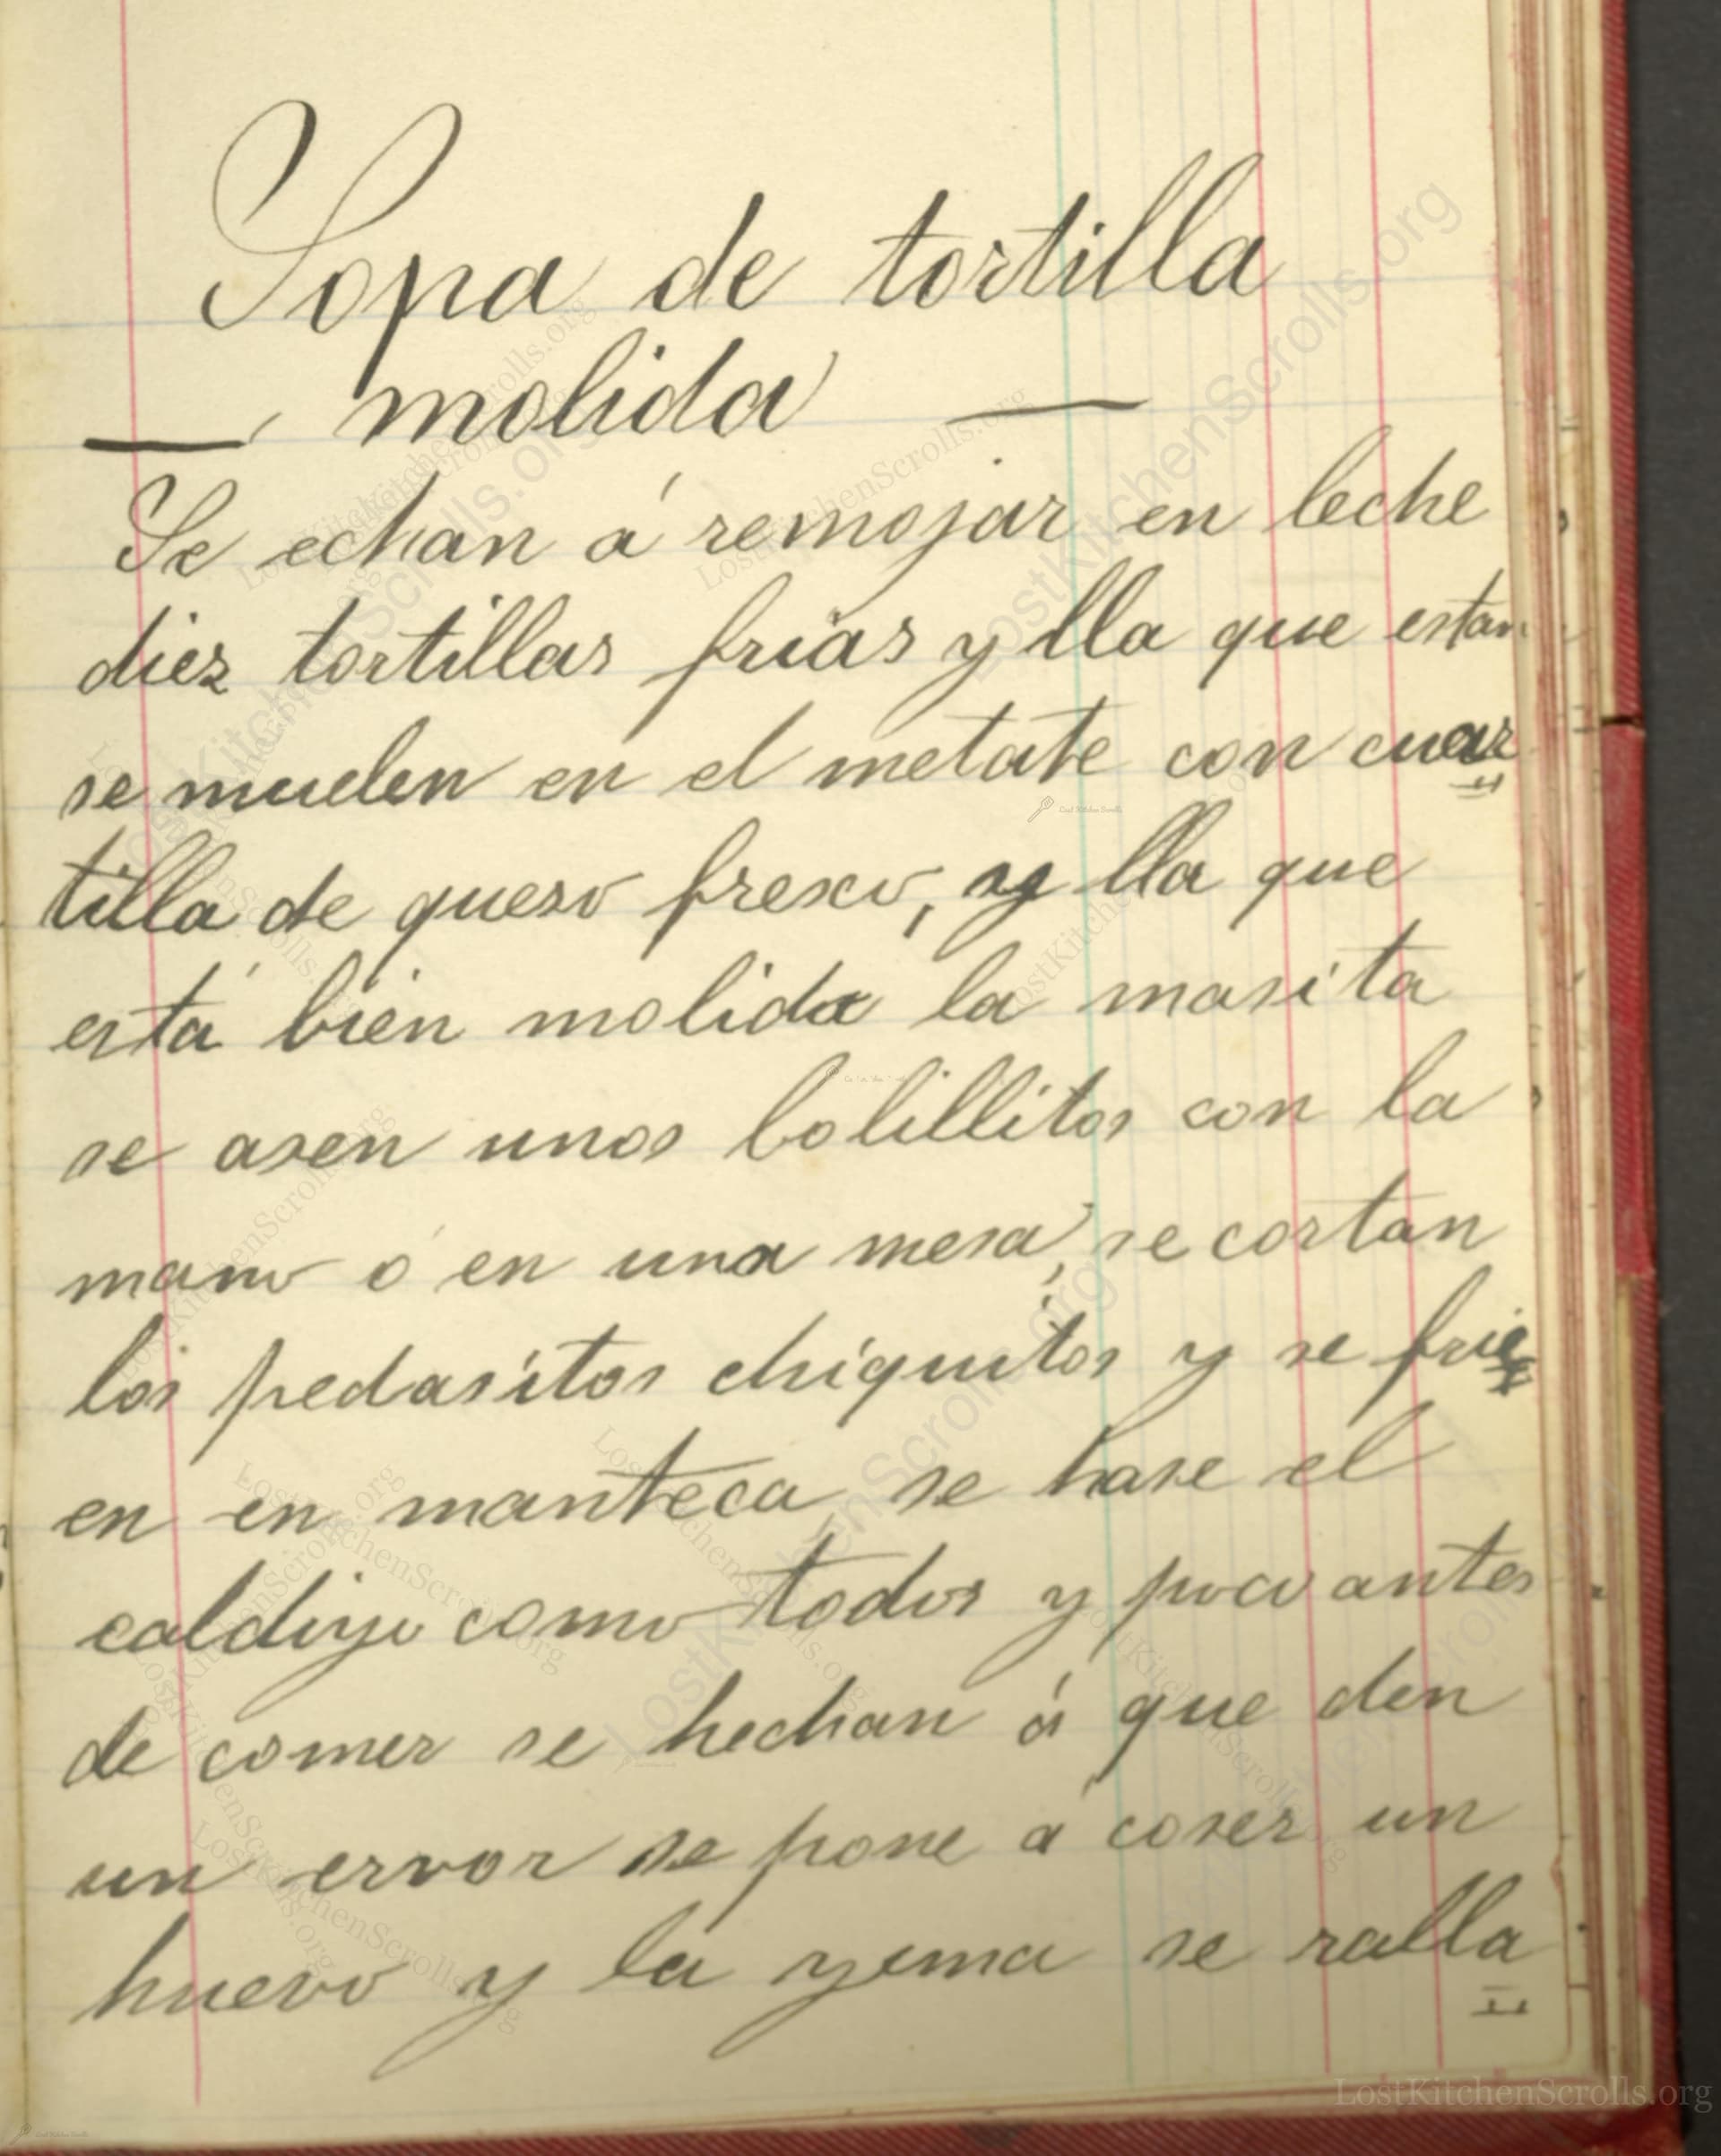 Sopa de tortilla
— molida —
Se echan á remojar en leche
diez tortillas frias y lla que estan
se muelen en el metate con cuar
tilla de queso fresco, y lla que
está bien molida la masita
se asen unos bolillitos con la
mano ó en una mesa, se cortan
los pedasitos chiquitos y se frie
en en manteca, se hase el
caldiyo como todos y poco antes
de comer se hechan á que den
un ervor se pone á coser un
huevo y la yema se ralla
LostKitchenScrolls.org